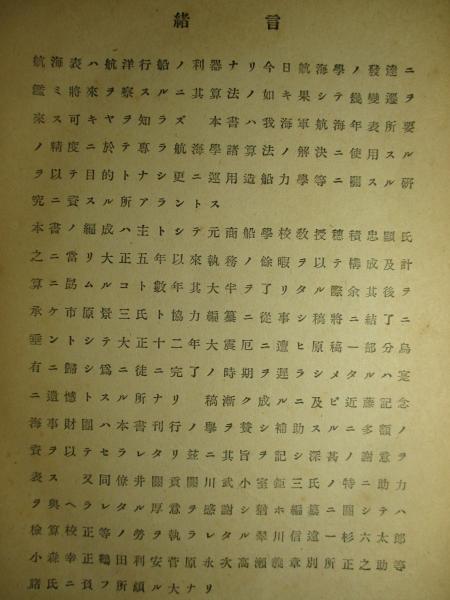 緒言
航海表ハ航洋行船ノ利器ナリ今日航海學ノ發達ニ
鑑ミ將來ヲ察スルニ其算法ノ如キ果シテ幾變遷ヲ
來ス可キヤヲ知ラズ 本書ハ我海軍航海年表所要
ノ精度ニ於テ專ラ航海學諸算法ノ解決ニ使用スル
ヲ以テ目的トナシ更ニ運用造船力學等ニ關スル研
究ニ資スル所アラントス
本書ノ編成ハ主トシテ元商船學校教授穗積忠顯氏
之ニ當リ大正五年以來執務ノ餘暇ヲ以テ構成及計
算ニ勗ムルコト數年其大半ヲ了リタル際余其後ヲ
承ケ市原景三氏ト協力編纂ニ從事シ稿將ニ結了ニ
垂ントシテ大正十二年大震厄ニ遭ヒ原稿一部分烏
有ニ歸シ爲ニ徒ニ完了ノ時期ヲ遲ラシメタルハ寔
ニ遺憾トスル所ナリ 稿漸ク成ルニ及ビ近藤記念
海事財團ハ本書刊行ノ擧ヲ贊シ補助スルニ多額ノ
資ヲ以テセラレタリ玆ニ其旨ヲ記シ深甚ノ謝意ヲ
表ス 又同僚井關貢關川武小室鉅三氏ノ特ニ助力
ヲ與ヘラレタル厚意ヲ感謝シ猶ホ編纂ニ關シテハ
檢算校正等ノ勞ヲ執ラレタル翠川信遠一杉六太郎
小森幸正鞆田利安菅原永次高瀬義章別所正之助等
諸氏ニ負フ所頗ル大ナリ